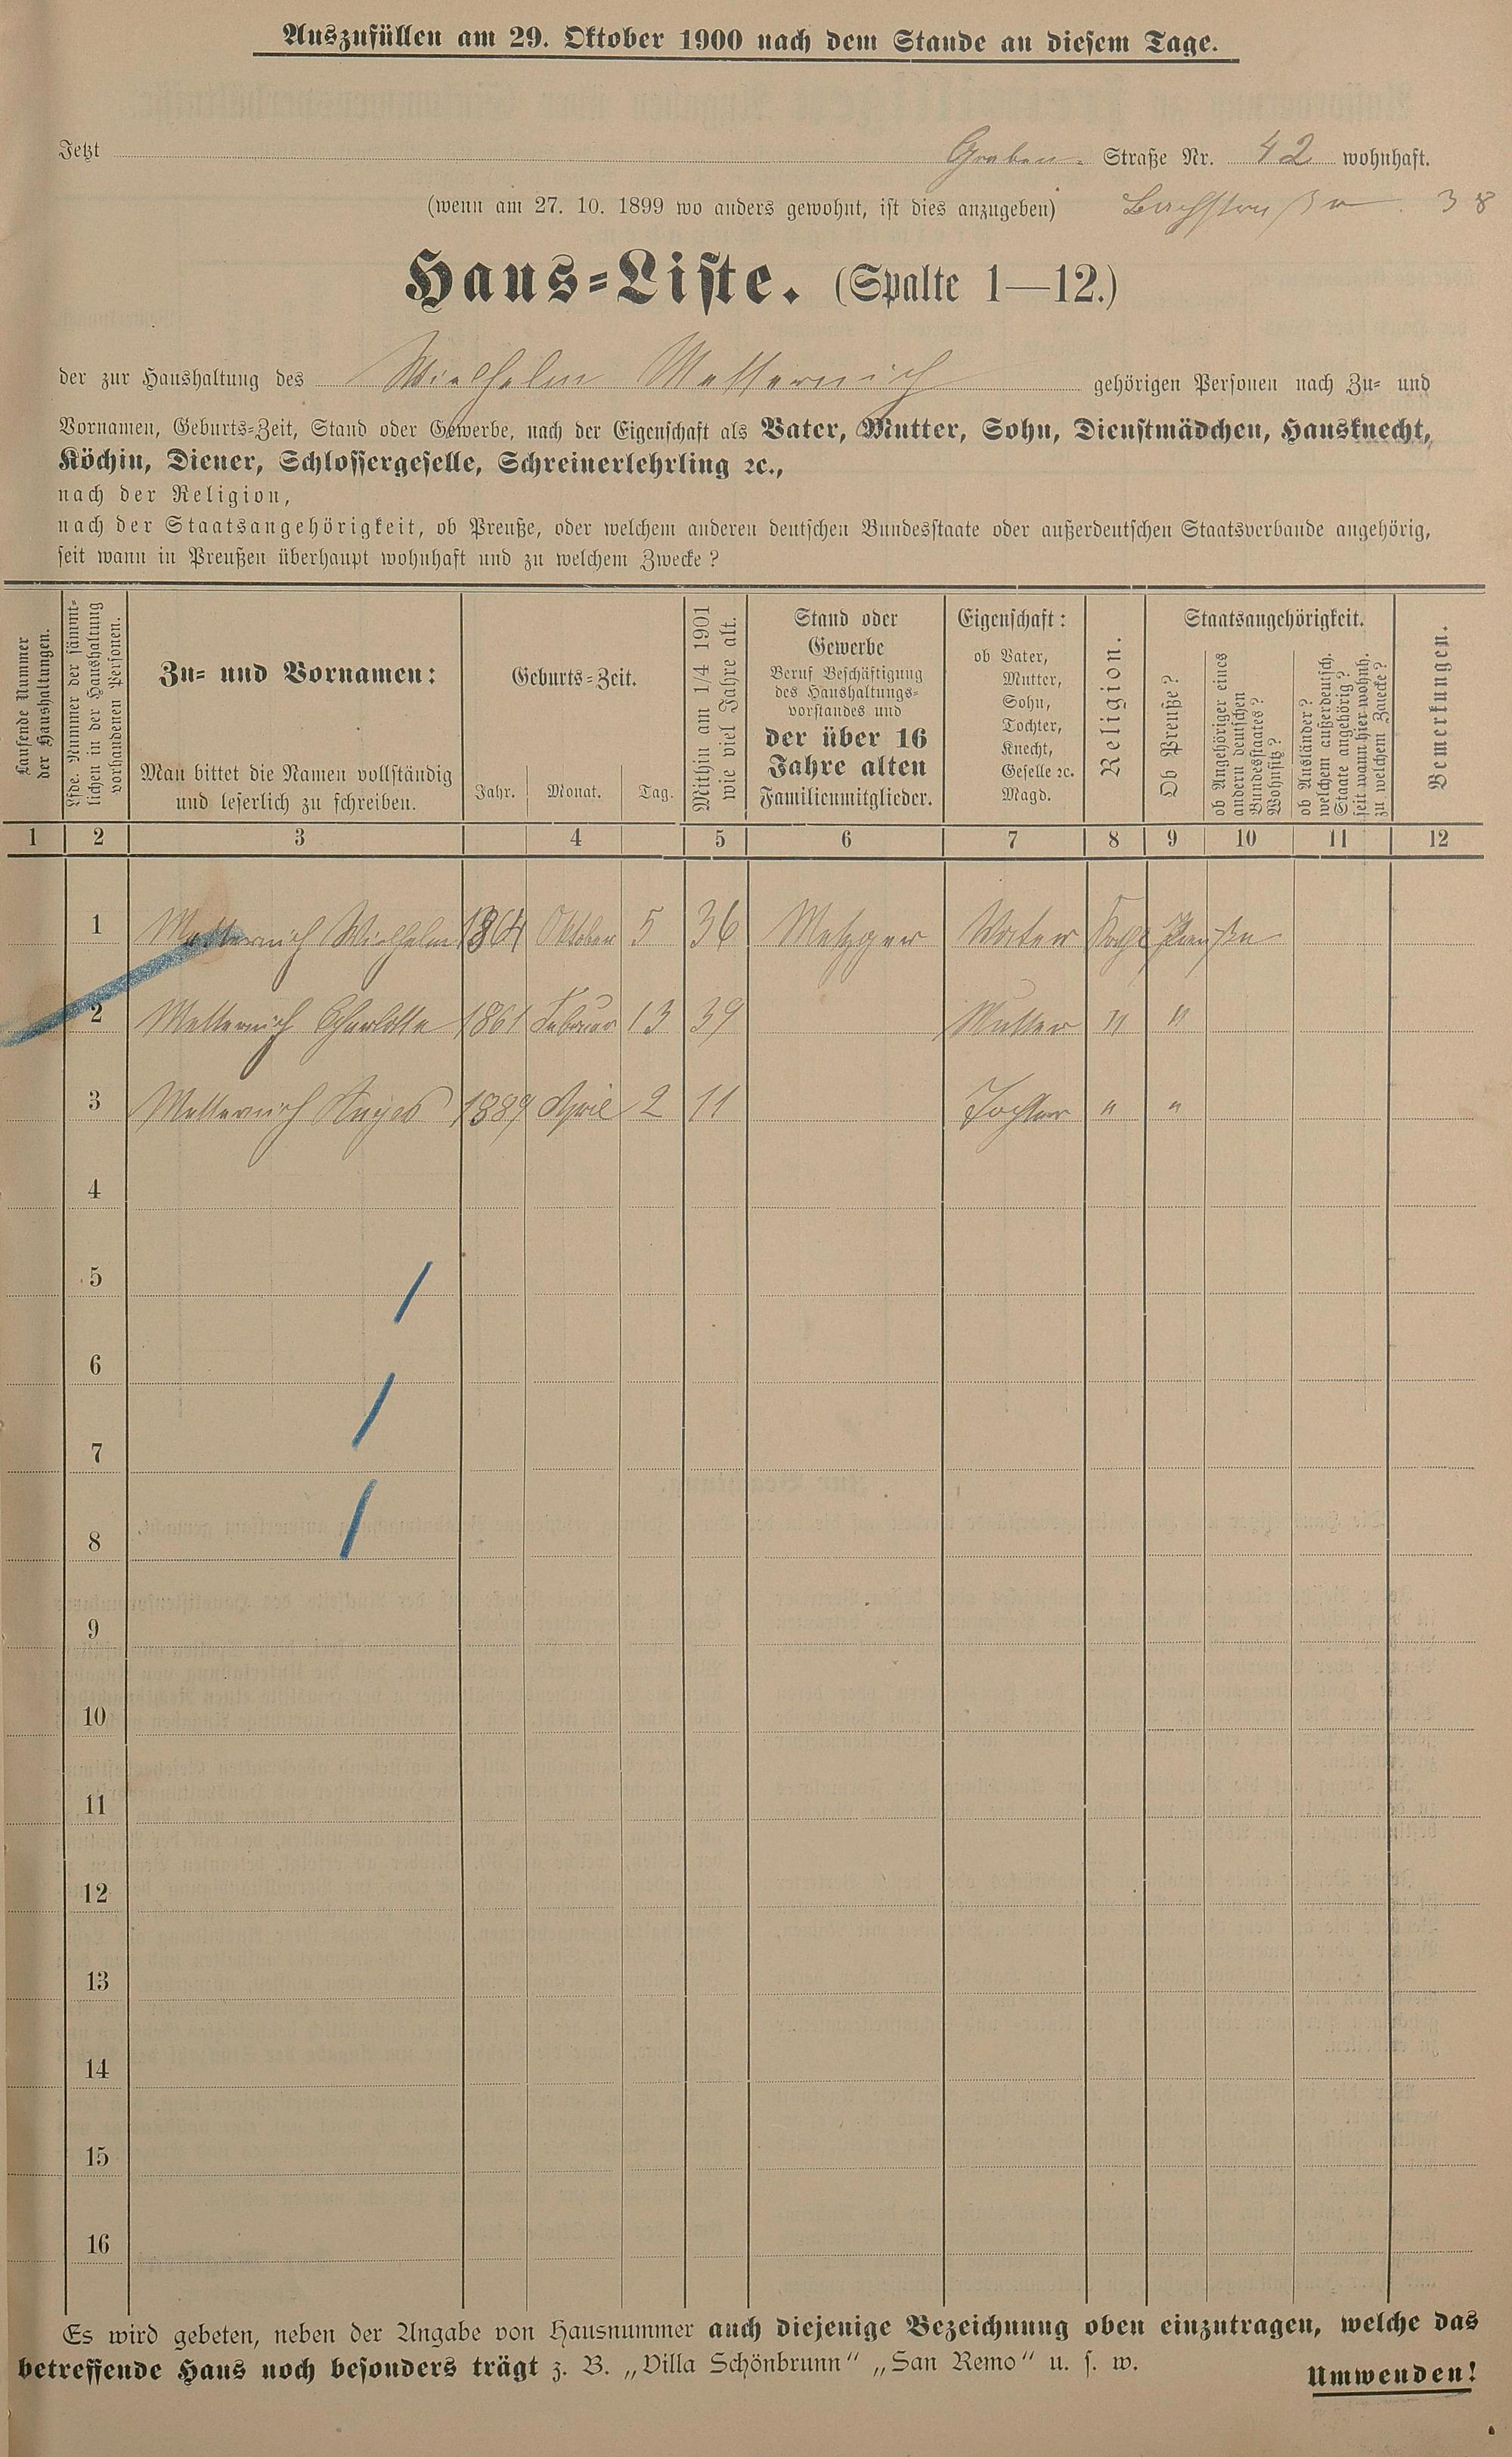 Auszufüllen am 29. Oktober 1900 nach dem Stande an diesem Tage.
Jetzt Graben- Straße Nr. 42 wohnhaft.
(wenn am 27. 10. 1899 wo anders gewohnt, ist dies anzugeben) Bachstraße 38
Haus-Liste. (Spalte 1—12.)
der zur Haushaltung des Wielhelm Metternich gehörigen Personen nach Zu- und
Vornamen, Geburts-Zeit, Stand oder Gewerbe, nach der Eigenschaft als Vater, Mutter, Sohn, Dienstmädchen, Hausknecht,
Köchin, Diener, Schlossergeselle, Schreinerlehrling ꝛc.,
nach der Religion,
nach der Staatsangehörigkeit, ob Preuße, oder welchem anderen deutschen Bundesstaate oder außerdeutschen Staatsverbande angehörig,
seit wann in Preußen überhaupt wohnhaft und zu welchem Zwecke?
Laufende Nummer
der Haushaltungen.
Lfde. Nummer der sämmt-
lichen in der Haushaltung
vorhandenen Personen.
Zu- und Vornamen:
Man bittet die Namen vollständig
und leserlich zu schreiben.
Geburts-Zeit.
Jahr. Monat. Tag.
Mithin am 1/4 1901
wie viel Jahre alt.
Stand oder
Gewerbe
Beruf Beschäftigung
des Haushaltungs-
vorstandes und
der über 16
Jahre alten
Familienmitglieder.
Eigenschaft:
ob Vater,
Mutter,
Sohn,
Tochter,
Knecht,
Geselle ꝛc.
Magd.
Religion.
Staatsangehörigkeit.
Ob Preuße?
ob Angehöriger eines
andern deutschen
Bundesstaates?
Wohnsitz?
ob Ausländer?
welchem außerdeutsch.
Staate angehörig?
seit wann hier wohnh.
zu welchem Zwecke?
Bemerkungen.
1 2 3 4 5 6 7 8 9 10 11 12
1 Metternich Wielhelm 1864 Oktober 5 36 Metzger Vater Kath Preuße
2 Metternich Charlotte 1861 Februar 13 39 Mutter " "
3 Metternich Agnes 1889 April 2 11 Tochter " "
4
5
6
7
8
9
10
11
12
13
14
15
16
Es wird gebeten, neben der Angabe von Hausnummer auch diejenige Bezeichnung oben einzutragen, welche das
betreffende Haus noch besonders trägt z. B. „Villa Schönbrunn“ „San Remo“ u. s. w.
Umwenden!